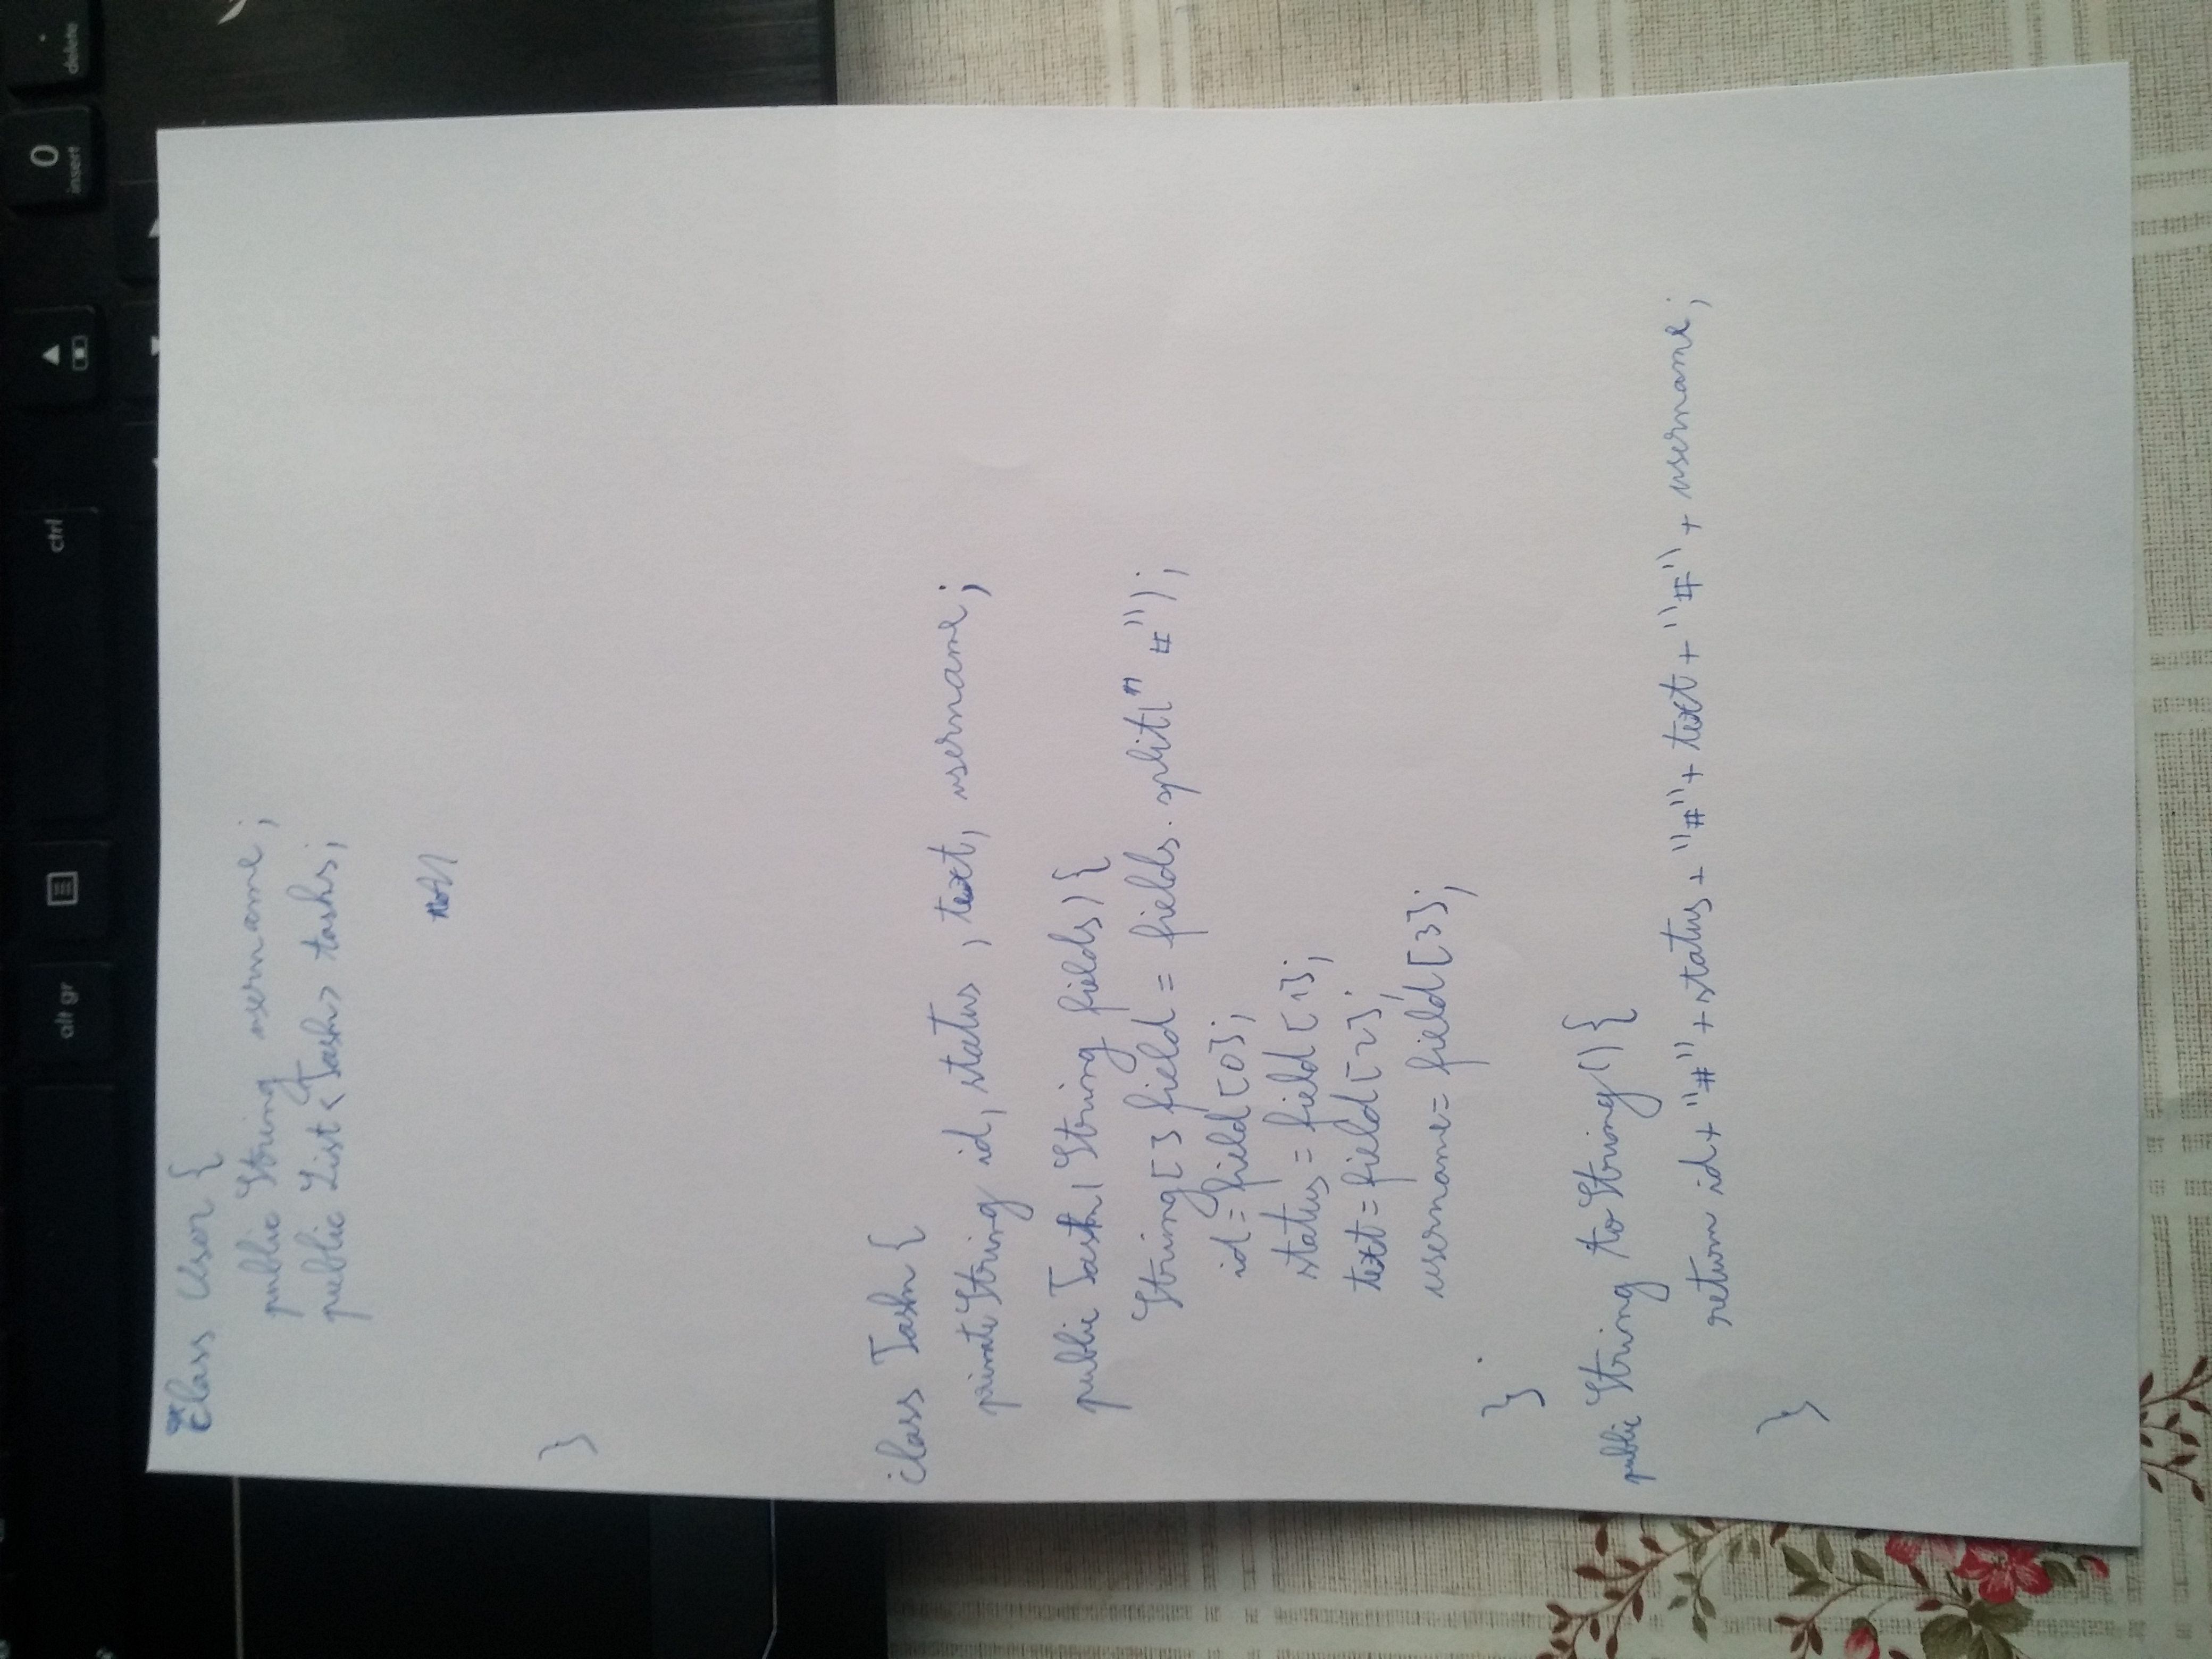 alt gr
ctrl
0
insert
delete
class User {
public String username;
public List<Task> tasks;
}
class Task {
private String id, status, text, username;
public Task(String fields){
String[] field = fields.split("#");
id=field[0];
status=field[1];
text=field[2];
username=field[3];
}
public String toString(){
return id+"#"+status+"#"+text+"#"+username;
}